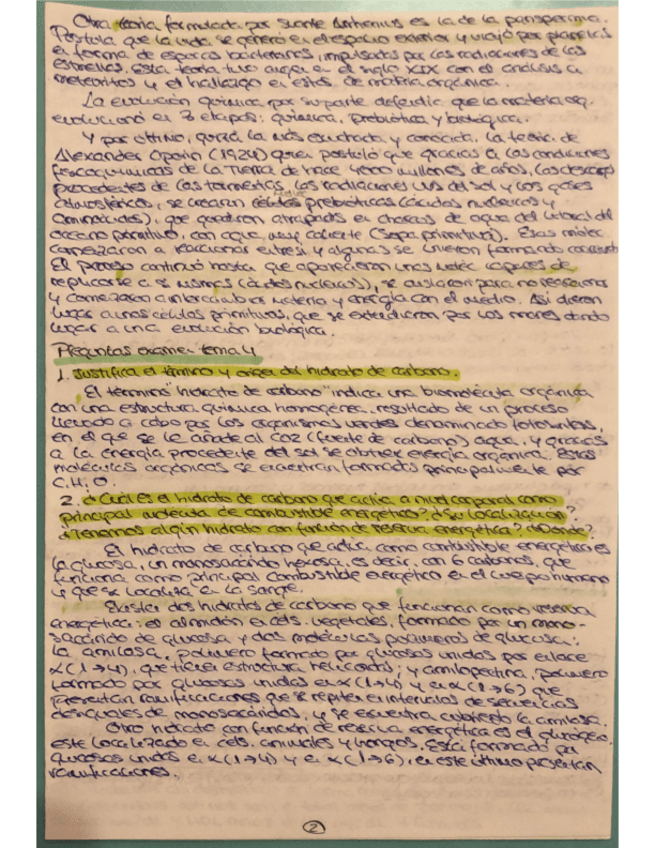 Otra teoría formulada por Svante Arrhenius es la de la panspermia.
Postula que la vida se generó en el espacio exterior y viajó por planetas
en forma de esporas bacterianas, impulsadas por las radiaciones de las
estrellas. Esta teoría tuvo auge en el siglo XIX con el análisis a
meteoritos y el hallazgo en estos de materia orgánica.
La evolución química por su parte defendía que la materia org.
evolucionó en 3 etapas: química, prebiótica y biológica.
Y por último, quizá la más escuchada y conocida, la teoría de
Alexander Oparin (1924) quien postuló que gracias a las condiciones
fisicoquímicas de la Tierra de hace 4000 millones de años, las descargas
procedentes de las tormentas, las radiaciones UVs del sol y los gases
atmosféricos, se crearon células prebióticas (ácidos nucleicos y
aminoácidos), que quedaron atrapadas en charcas de agua del litoral del
océano primitivo, con agua muy caliente (sopa primitiva). Esas moléc.
comenzaron a reaccionar entre sí y algunas se unieron formando
El proceso continuó hasta que aparecieron unas moléc capaces de
replicarse a sí mismas (ácidos nucleicos), se aislaron para no reaccionar
y comenzaron a intercambiar materia y energía con el medio. Así dieron
lugar a unas células primitivas, que se extendieron por los mares dando
lugar a una evolución biológica.
Preguntas examen tema 4
1. Justifica el término y origen del hidrato de carbono.
El término "hidrato de carbono" indica una biomolécula orgánica
con una estructura química homogénea, resultado de un proceso
llevado a cabo por los organismos verdes denominado fotosíntesis,
en el que se le añade al CO2 (fuente de carbono) agua, y gracias
a la energía procedente del sol se obtiene energía orgánica. Estas
moléculas orgánicas se encuentran formadas principalmente por
C, H, O.
2. ¿Cuál es el hidrato de carbono que actúa a nivel corporal como
principal molécula de combustible energético? ¿Su localización?
¿Tenemos algún hidrato con función de reserva energética? ¿Dónde?
El hidrato de carbono que actúa como combustible energético es
la glucosa, un monosacárido hexosa, es decir, con 6 carbonos, que
funciona como principal combustible energético en el cuerpo humano
y que se localiza en la sangre.
Existen dos hidratos de carbono que funcionan como reserva
energética: el almidón en céls. vegetales, formado por un mono-
sacárido de glucosa y dos moléculas polímeros de glucosa:
la amilosa, polímero formado por glucosas unidas por enlace
α(1→4), que tienen estructura helicoidal; y amilopectina, polímero
formado por glucosas unidas en α(1→4) y en α(1→6) que
presentan ramificaciones que se repiten en intervalos de secuencias
desiguales de monosacáridos, y se encuentra cubriendo la amilosa.
Otro hidrato con función de reserva energética es el glucógeno,
este localizado en céls. animales y hongos. Está formado por
glucosas unidas en α(1→4) y en α(1→6), en este último presentan
ramificaciones.
2